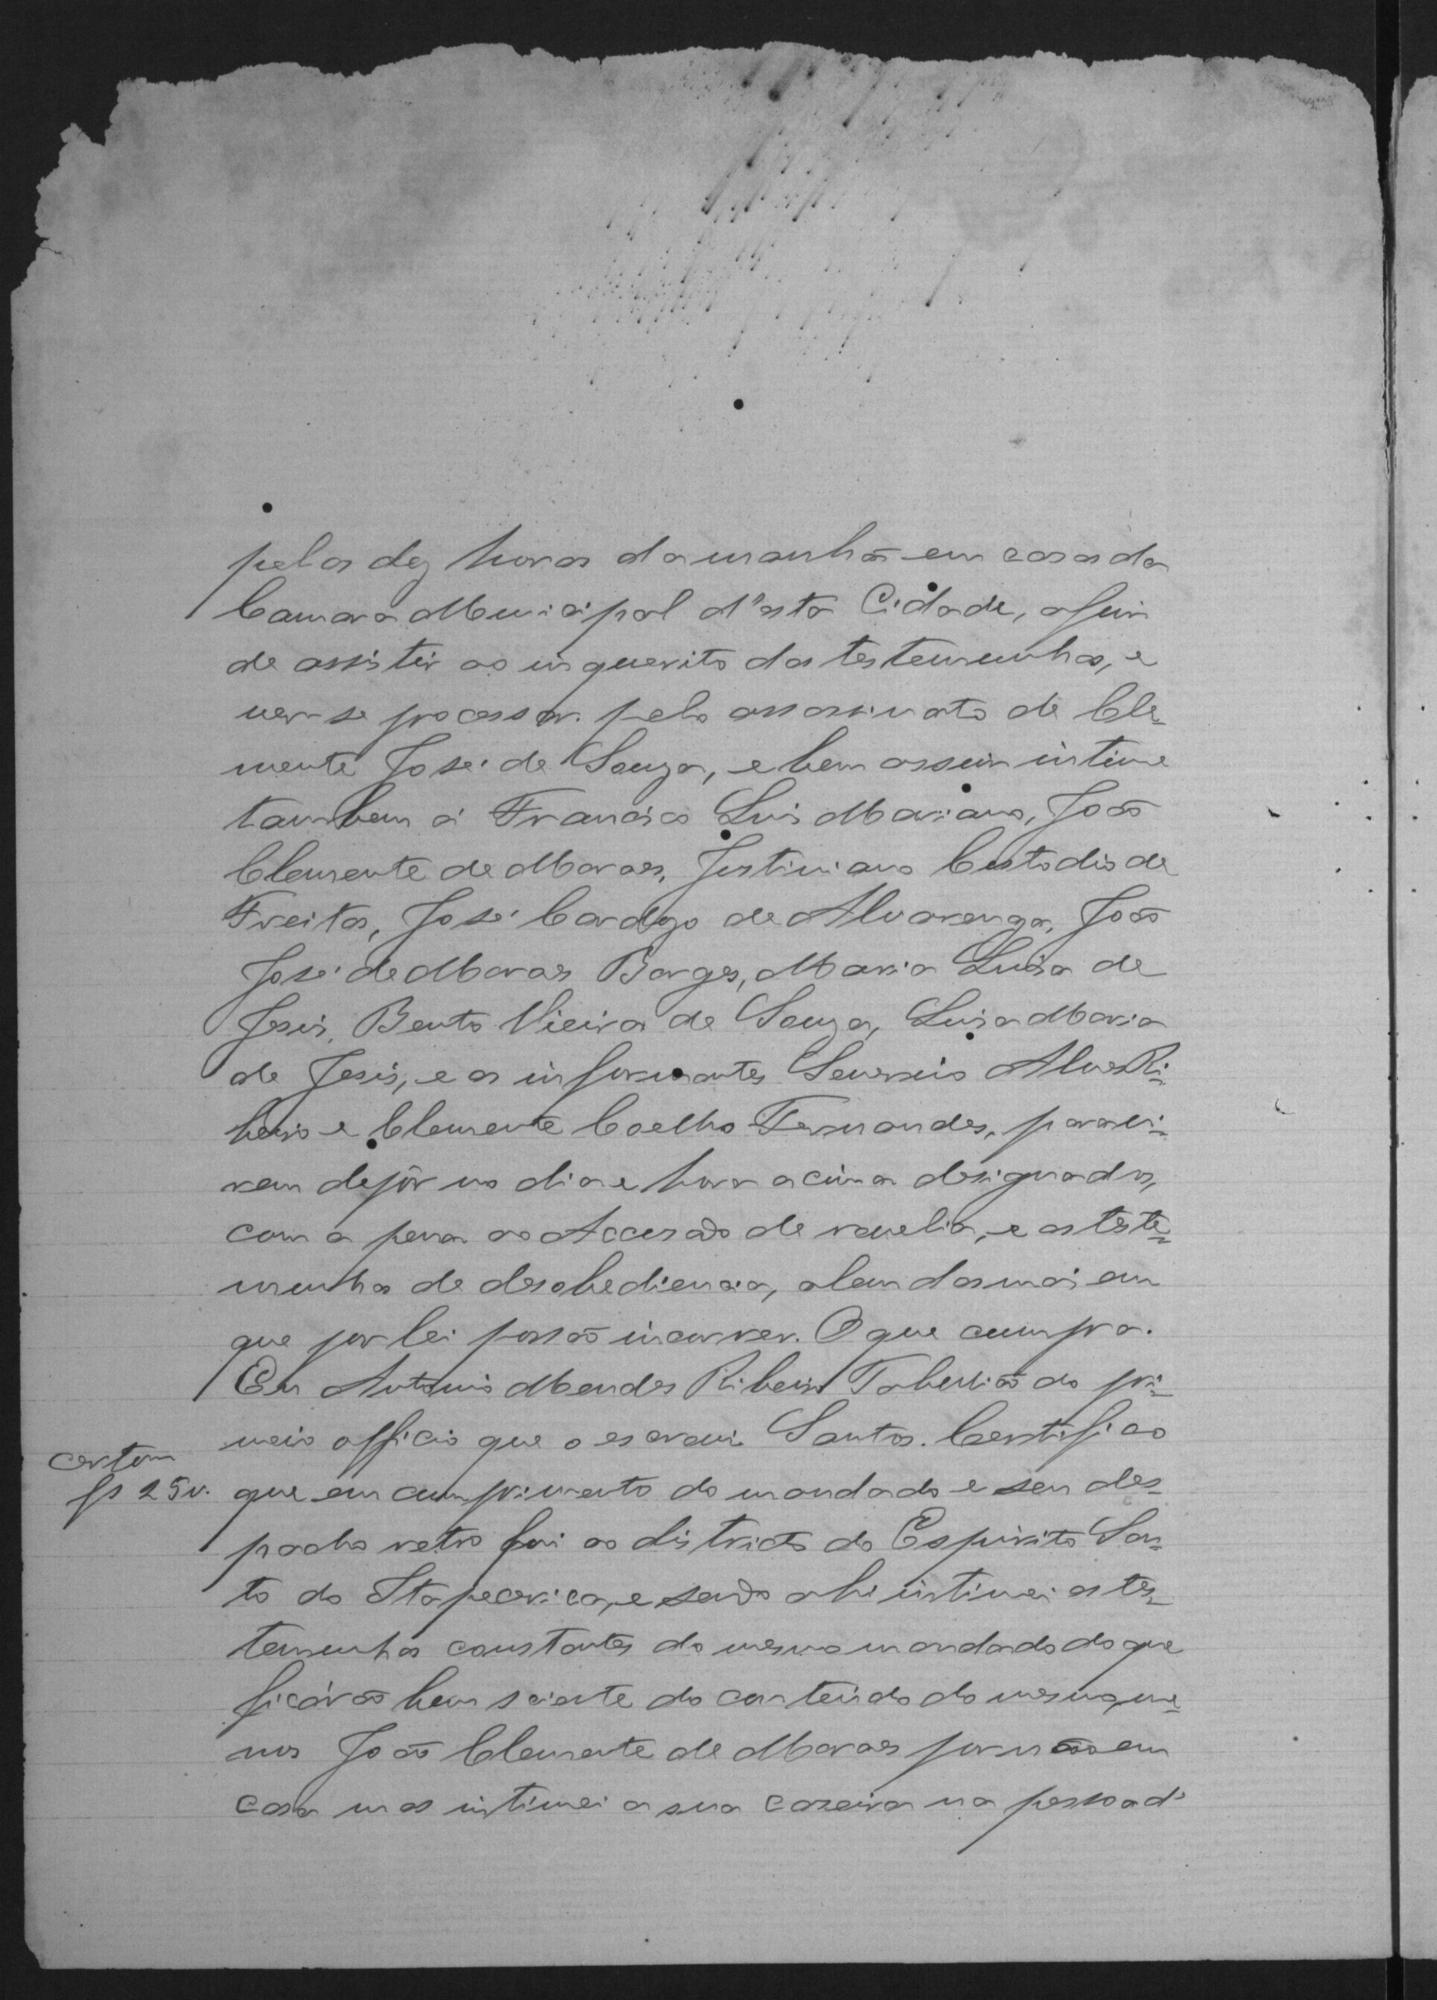 pelas dez horas da manhã em casas da
Camara Municipal d'esta Cidade, afim
de assistir ao inquerito das testemunhas, e
ver-se processar pelo assassinato de Cle-
mente José de Souza, e bem assim intime
tambem á Francisco Luis Mariano, João
Clemente de Moraes, Justiniano Custodio de
Freitas, José Cardozo de Alvarenga, João
José de Moraes Borges, Maria Luisa de
Jesus, Bento Vieira de Souza, Luisa Maria
de Jesus, e os informantes Severino Alves Ri-
beiro e Clemente Coelho Fernandes, para vi-
rem depôr no dia e hora acima designados,
com a pena ao Accusado de revelia, e as teste-
munhas de desobediencia, alem das mais em
que por lei possão incorrer. O que cumpra.
Eu Antonio Mendes Ribeiro Tabelião do pri-
meiro officio que o escrevi. Santos. Certifico
certam
fs 25v.
que em cumprimento do mandado e seu des-
pacho retro fui ao districto do Espirito San-
to do Itapecerica, e sendo ahi intimei as tes-
temunhas constantes do mesmo mandado do que
ficárão bem sciente do contéudo do mesmo, me-
nos João Clemente de Moraes por não em
casa mas intimei a sua caseira na pessoa d'